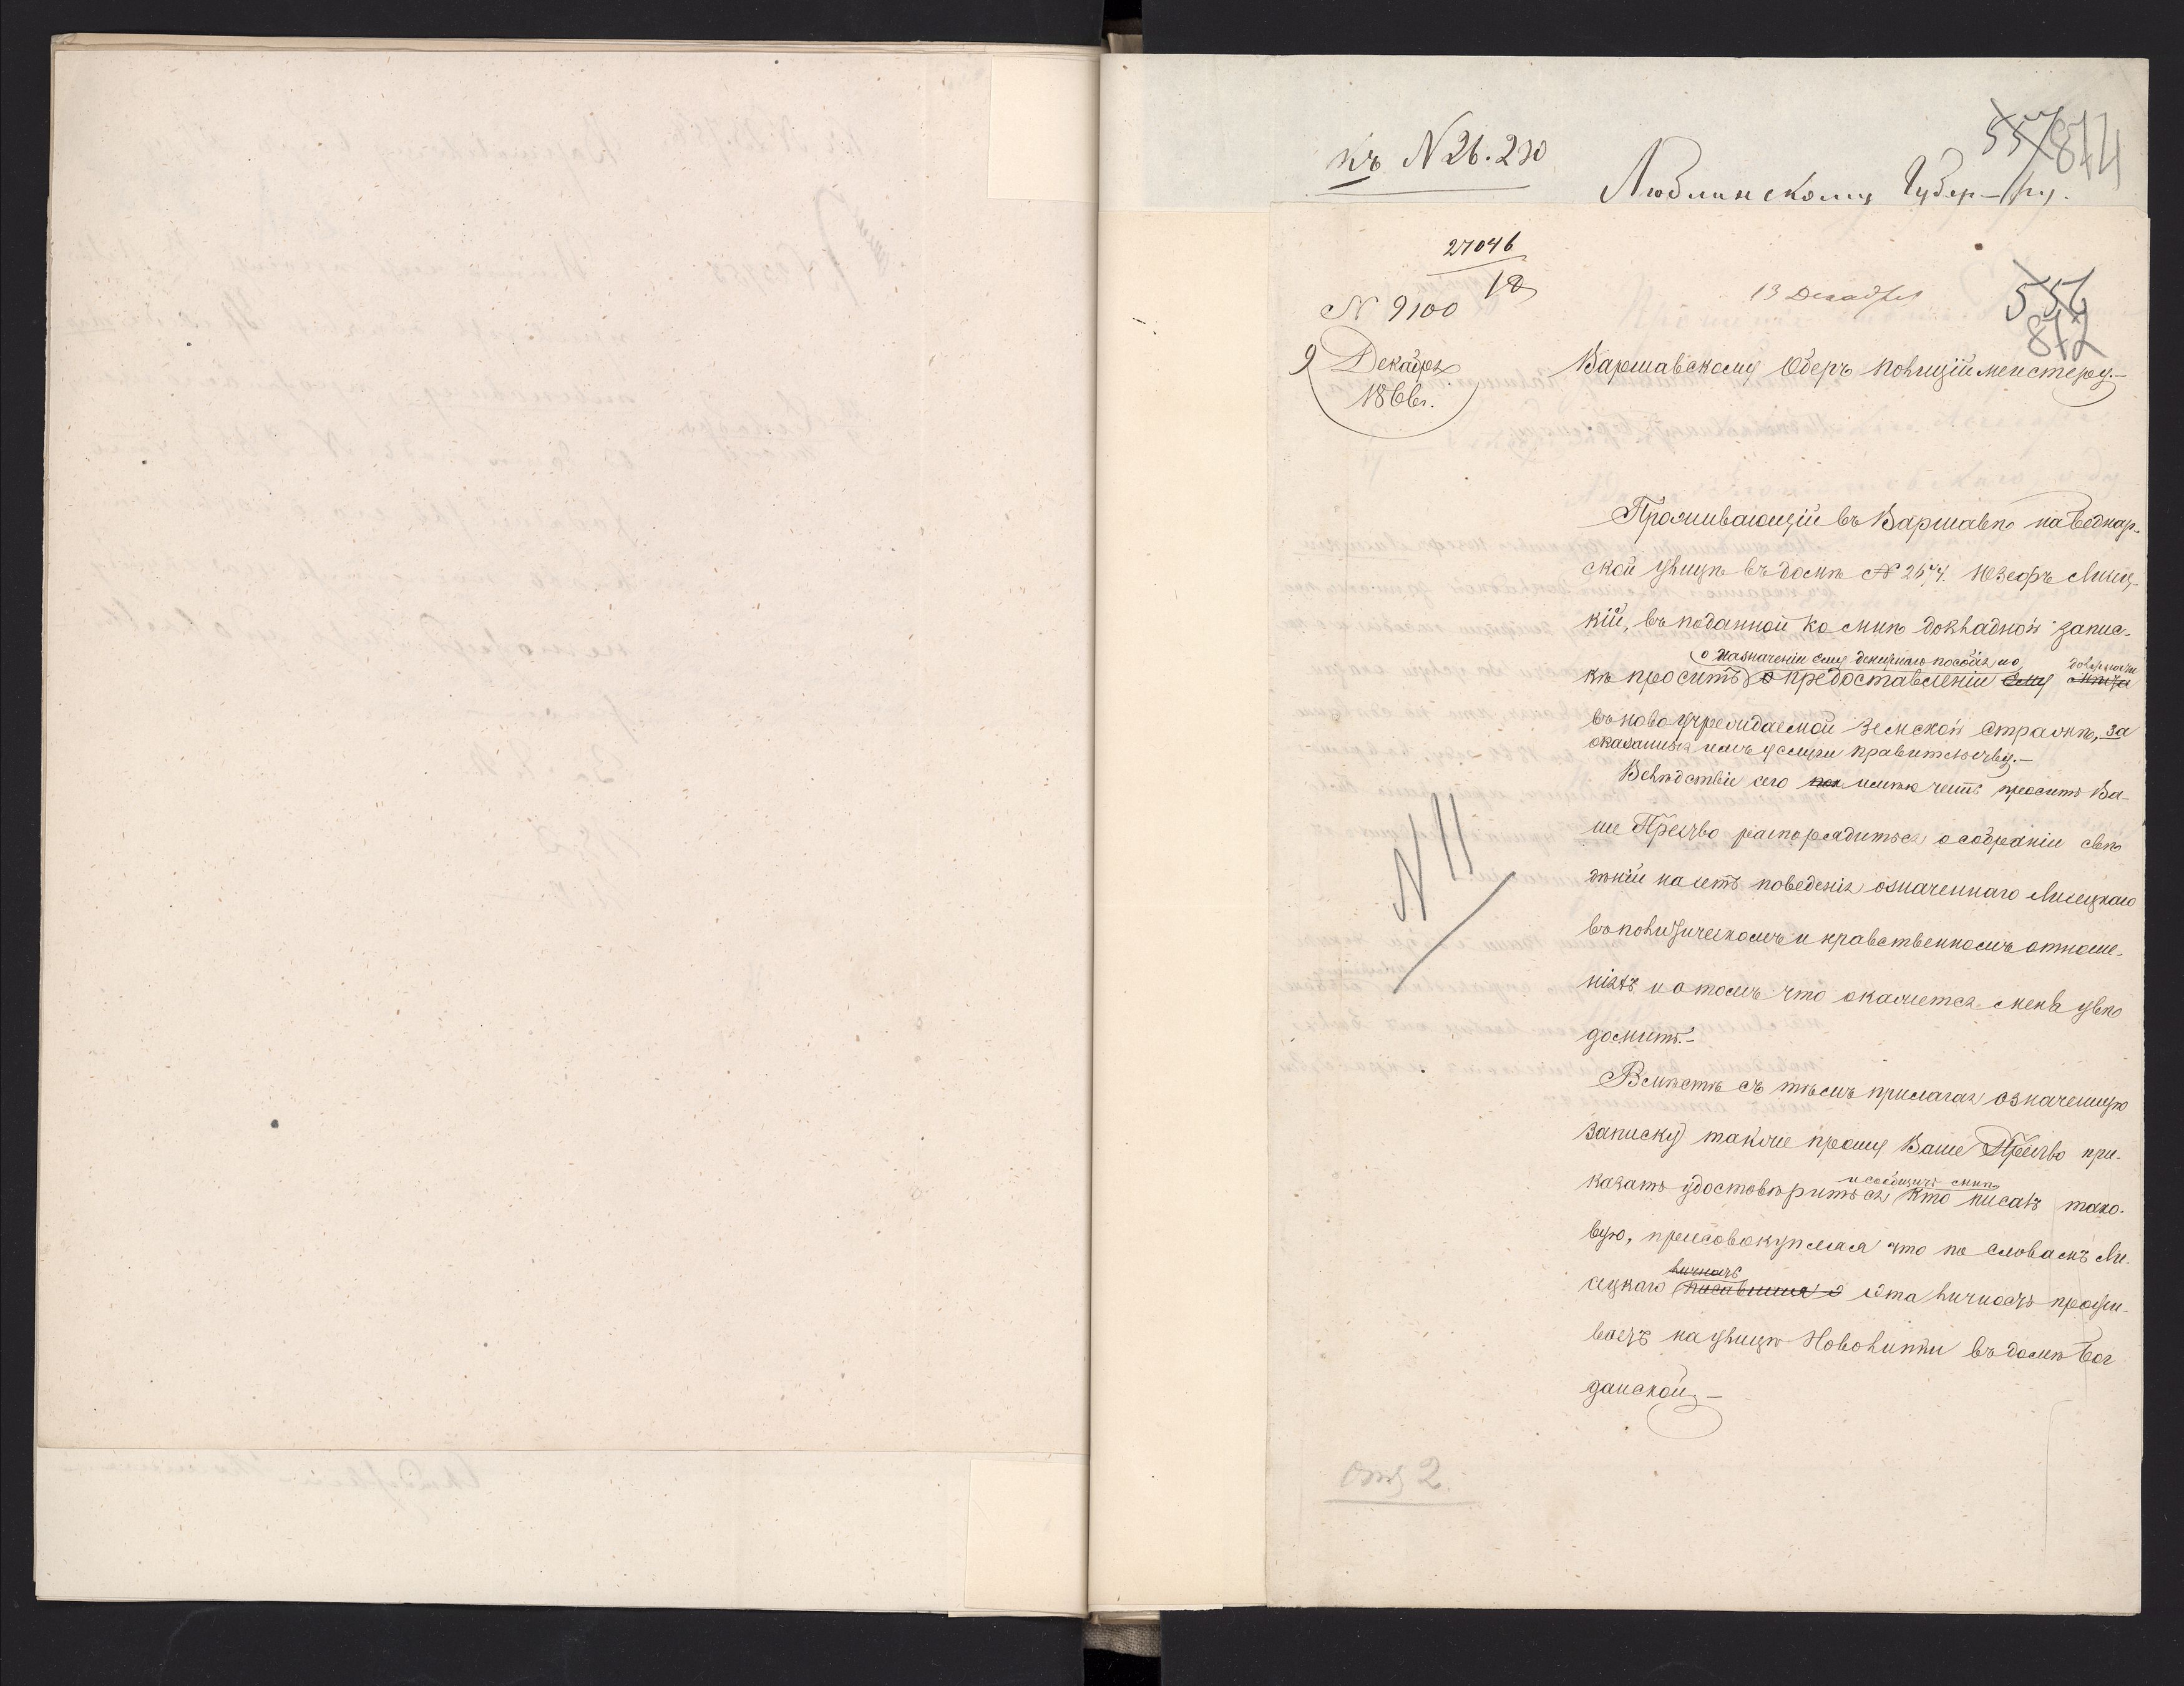 къ N 26.230
557
874
Люблинскому Губер-ру.
27046
18
N 9100
13 Декабря
556
872
9 Декабря
1866 г.
Варшавскому Оберъ Полиціймейстеру.—
Проживающій въ Варшавѣ на Беднар-
ской улицѣ въ домѣ № 2674. Юзефъ Лисец-
кій, въ поданной ко мнѣ докладной запис-
о назначеніи ему денежнаго пособія и о
кѣ проситъ о предоставленіи ему
въ ново-учреждаемой Земской Стражѣ, за
оказанныя имъ услуги правительству.—
Вслѣдствіе сего имѣю честь просить Ва-
ше Прев-ство распорядиться о собраніи свѣ
дѣній насчетъ поведенія означеннаго Лисецкаго
въ политическомъ и нравственномъ отноше-
ніяхъ и о томъ что окажется меня увѣ
домить.—
Вмѣстѣ съ тѣмъ прилагая означенную
записку также прошу Ваше Прев-ство при-
и сообщить мнѣ
казать удостовѣриться кто писалъ тако-
вую, присовокупляя что по словамъ Ли-
сецкаго эта личность прожи-
ваетъ на улицѣ Новолипки въ домѣ Бог
данской.—
N 11
Отд 2.